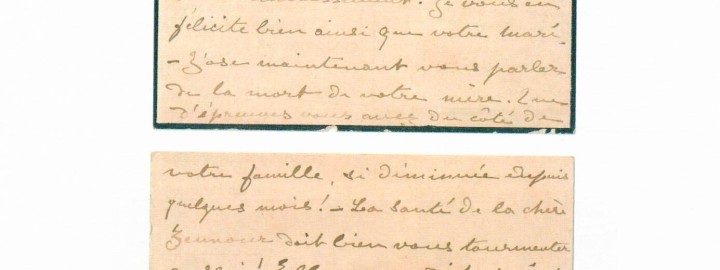 Je vous en
félicite bien ainsi que votre mari.
– J'ose maintenant vous parler
de la mort de votre mère. Que
d'épreuves vous avez du côté de
votre famille, si diminuée depuis
quelques mois! – La santé de la chère
doit bien vous tourmenter